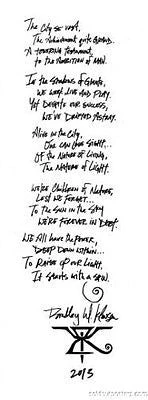 The City so vast,
The Achievement quite grand...
A towering testament,
to the Ambition of Man.
In the Shadows of Giants,
we work, live and play.
Yet despite our success,
we've drifted astray.
Alive in the City,
One can lose sight...
Of the Nature of Living,
The Nature of Light.
We're Children of Nature,
Lest we forget...
To the Sun in the Sky
We're forever in debt.
We all have the power,
Deep down within...
To raise up our light,
It starts with a spin.
2013